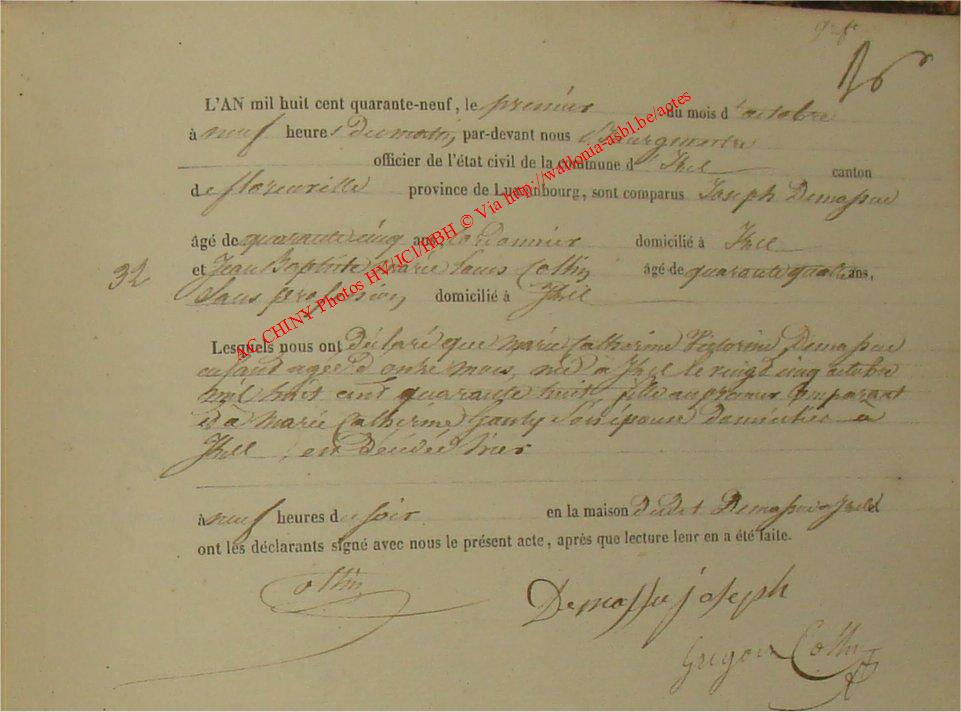 16
L'AN mil huit cent quarante-neuf, le premier du mois d'octobre
à neuf heures du matin, par-devant nous Bourgmestre
officier de l'état civil de la commune d'Izel canton
de florenville province de Luxembourg, sont comparus Joseph Demasue
âgé de quarante cinq ans, cordonnier domicilié à Izel
32
et Jean Baptiste marie Louis Collin âgé de quarante quatre ans,
Sans profession, domicilié à Izel
Lesquels nous ont déclaré que marie Catherine Victorine Demasue
enfant agée d'onze mois, née à Izel le vingt cinq octobre
mil huit cent quarante huit, fille au premier Comparant
et à marie Catherine Son épouse domiciliée à
Izel, est décédée hier
à neuf heures du soir en la maison dudit Demasue à Izel et
ont les déclarants signé avec nous le présent acte, après que lecture leur en a été faite.
Collin
Demasse joseph
Grégoire Collin
AC CHINY Photos HV/JCI/BBH © Via http://wallonia-asbl.be/actes